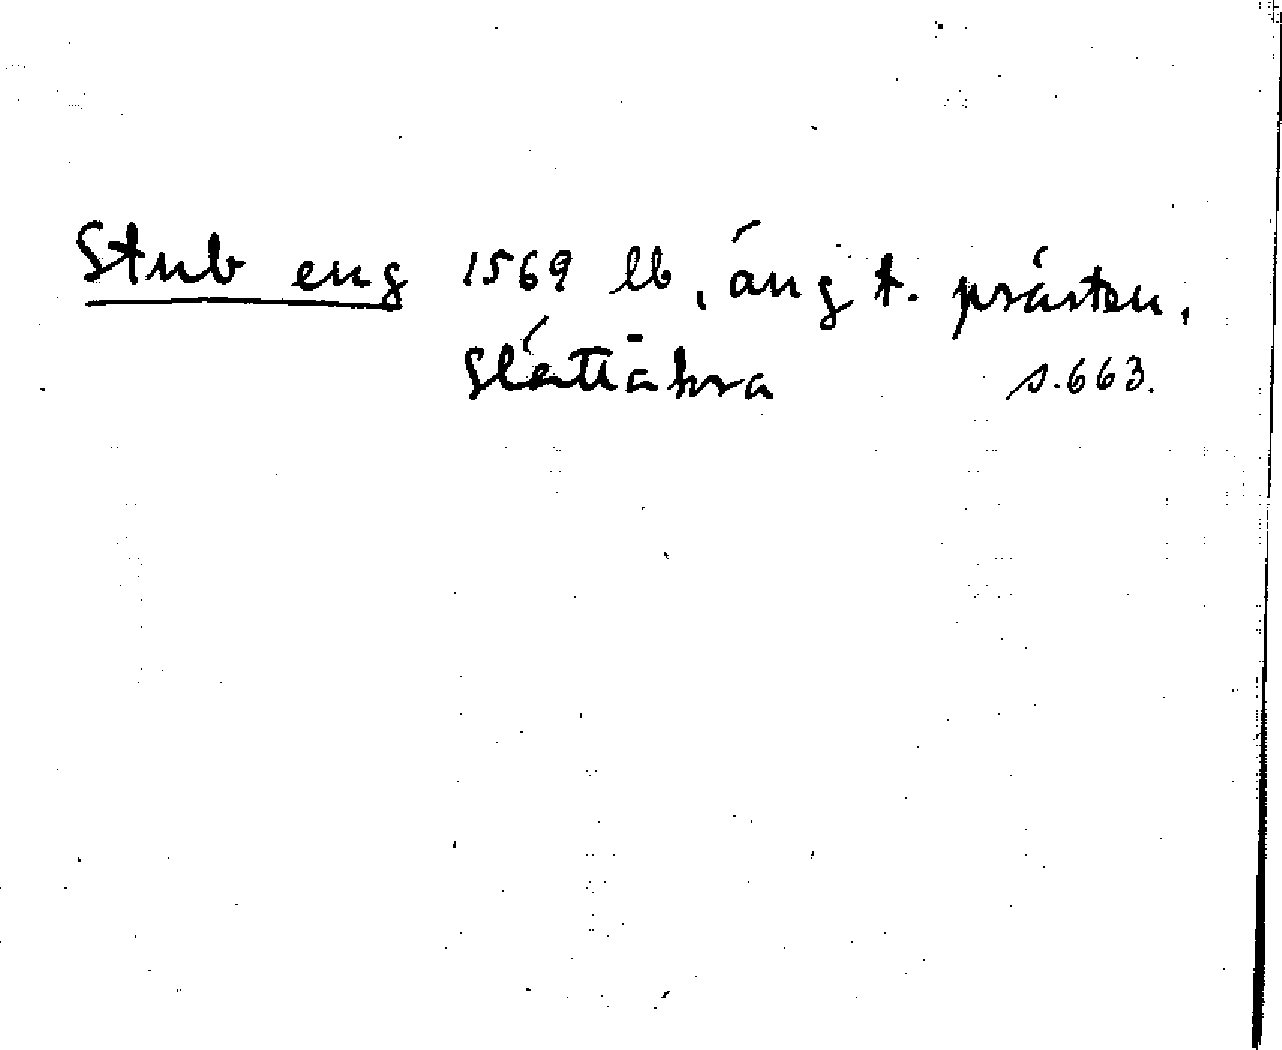 Stub eng 1569 lb, äng t. prästen,
Slättåkra s.663.